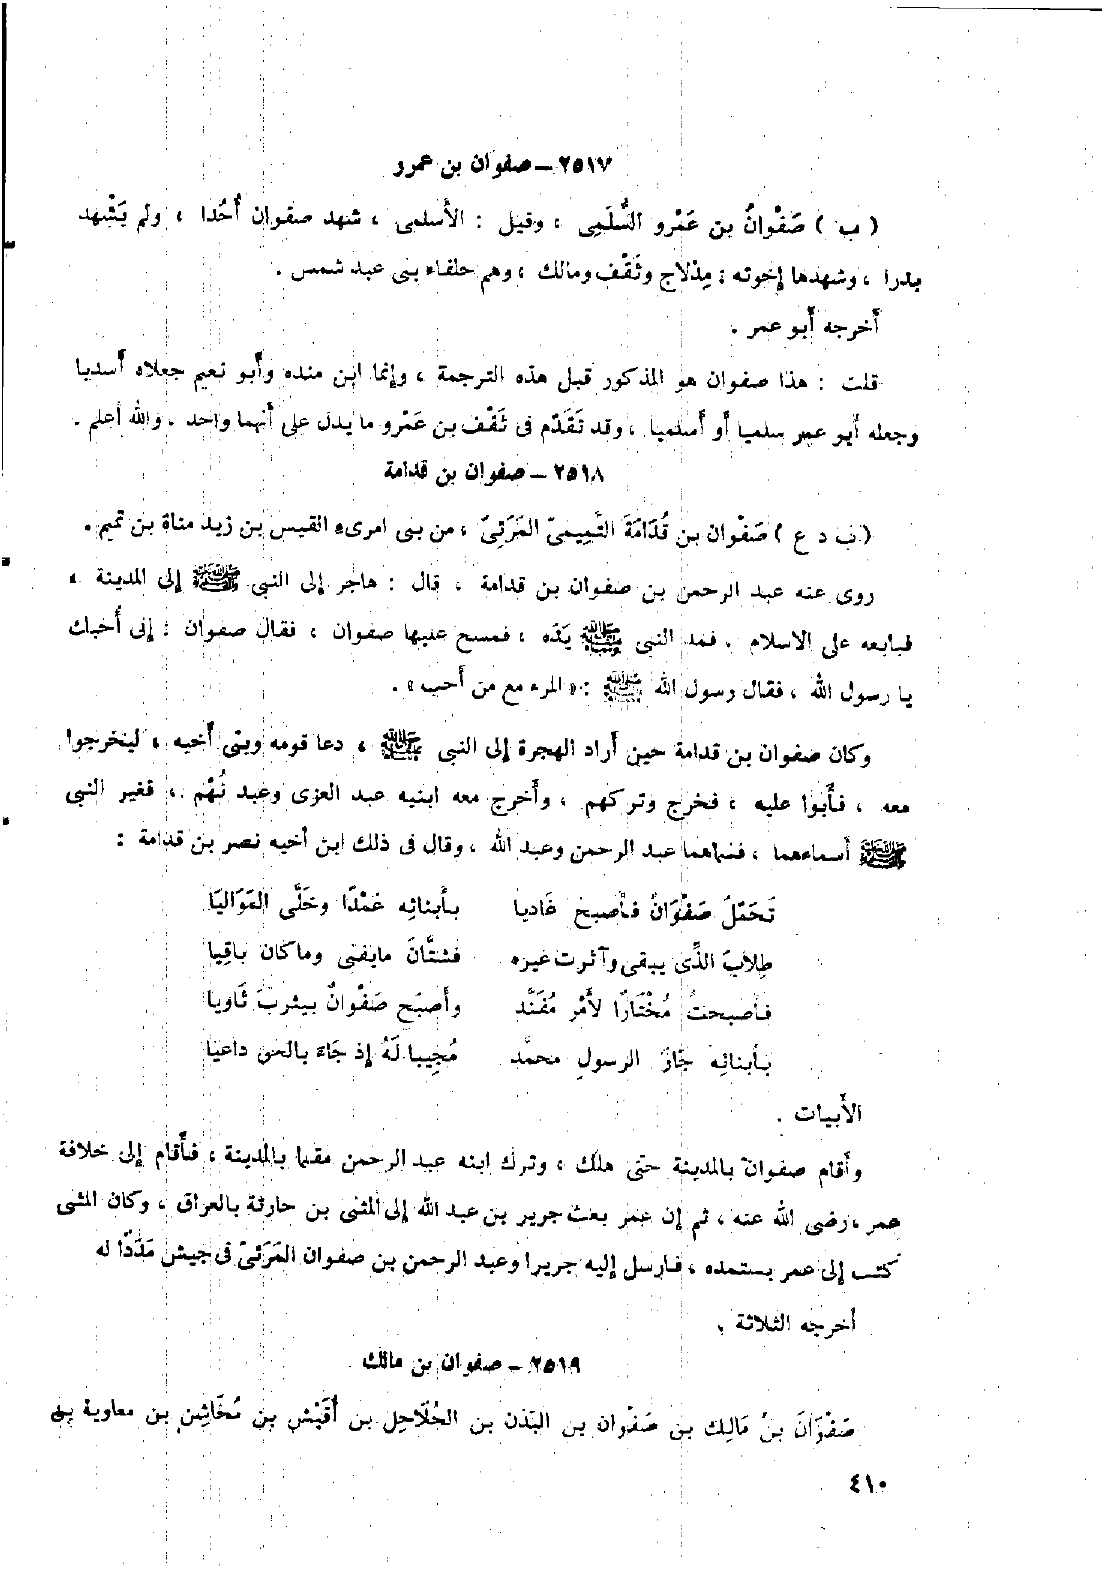 ٢٥١٧ – صفوان بن عمرو
( ب ) صَفْوَانُ بن عَمْرو السُّلَمِى ، وقيل : الأَسلمى ، شهد صفوان أُحُدا ، ولم يَشْهد
بدرا ، وشهدها إخوته : مِدْلاج وثَقْف ومالك ، وهم حلفاء بنى عبد شمس .
أخرجه أَبو عمر .
قلت : هذا صفوان هو المذكور قبل هذه الترجمة ، وإنما ابن منده وأَبو نعيم جعلاه أَسديا
وجعله أَبو عمر سلميا أَو أَسلميا ، وقد تَقَدّم فى ثَقْف بن عَمْرو ما يدل على أَنهما واحد . والله أعلم .
٢٥١٨ – صفوان بن قدامة
( ب د ع ) صَفْوان بن قُدَامَةَ التَّمِيمىّ المَرَئِىّ ، من بنى امرىء القيس بن زيد مناة بن تميم .
روى عنه عبد الرحمن بن صفوان بن قدامة ، قال : هاجر إلى النبى ﷺ إلى المدينة ،
فبايعه على الاسلام . فمد النبى ﷺ يَدَه ، فمسح عليها صفوان ، فقال صفوان : إنى أُحبك
يا رسول الله ، فقال رسول الله ﷺ : « المرء مع من أَحب » .
وكان صفوان بن قدامة حين أَراد الهجرة إلى النبى ﷺ ، دعا قومه وبنى أَخيه ، ليخرجوا
معه ، فأَبوا عليه ، فخرج وتركهم ، وأَخرج معه ابنيه عبد العزى وعبد نُهْم ، فغير النبى
ﷺ أَسماءهما ، فسماهما عبد الرحمن وعبد الله ، وقال فى ذلك ابن أَخيه نصر بن قدامة :
تَحَمّلَ صَفْوَانُ فأَصبح غَاديا بأَبنائِه عَمْدًا وخَلَّى المَوَاليَا
طِلاَبَ الذَّى يبقى وآثرت غيره فشتَّانَ مايفنى وماكان باقِيا
فأَصبحتُ مُخْتَارًا لأَمْر مُفَنَّد وأَصبَح صَفْوانُ بيثربَ ثَاويا
بأَبنائِه جَارَ الرسولِ محمَّد مُجِيبا لَهُ إذ جَاءَ بالحق داعيا
الأَبيات .
وأَقام صفوان بالمدينة حتى هلك ، وترك ابنه عبد الرحمن مقيما بالمدينة ، فأَقام إلى خلافة
عمر ، رضى الله عنه ، ثم إن عمر بعث جرير بن عبد الله إلى المثنى بن حارثة بالعراق ، وكان المثنى
كتب إلى عمر يستمده ، فأرسل إليه جريرا وعبد الرحمن بن صفوان المَرَئىّ فى جيش مَدَدًا له
أخرجه الثلاثة .
٢٥١٩ – صفوان بن مالك
صَفْوَانَ بنُ مَالِك بن صَفْوان بن البَدَن بن الحُلاَحِل بن أُقَيْش بن مُخَاشِن بن معاوية بن
٤١٠